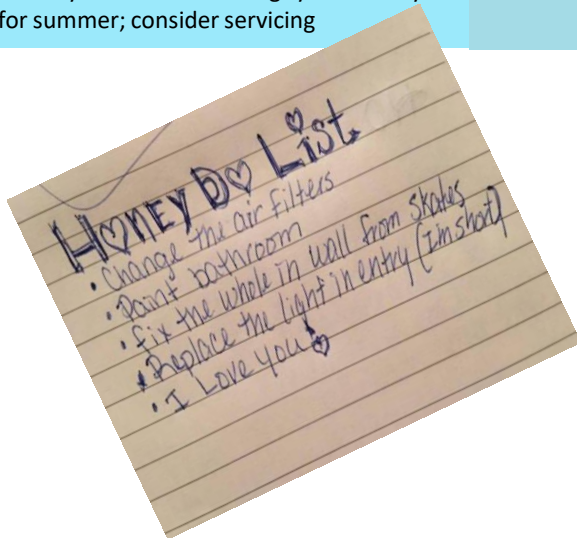 for summer; consider servicing
Honey Do List
• Change the air filters
• Paint bathroom
• fix the whole in wall from skates
• Replace the light in entry (I'm short)
• I Love you